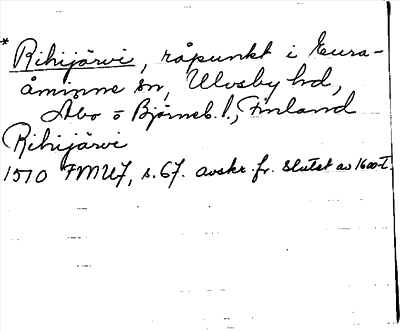 * Rihijärvi, råpunkt i Eura-
åminne sn, Ulvsby hd,
Åbo o Björneb. l., Finland
Rihijärvi
1510 FMU7, s. 67. avskr. fr. slutet av 1600-t.